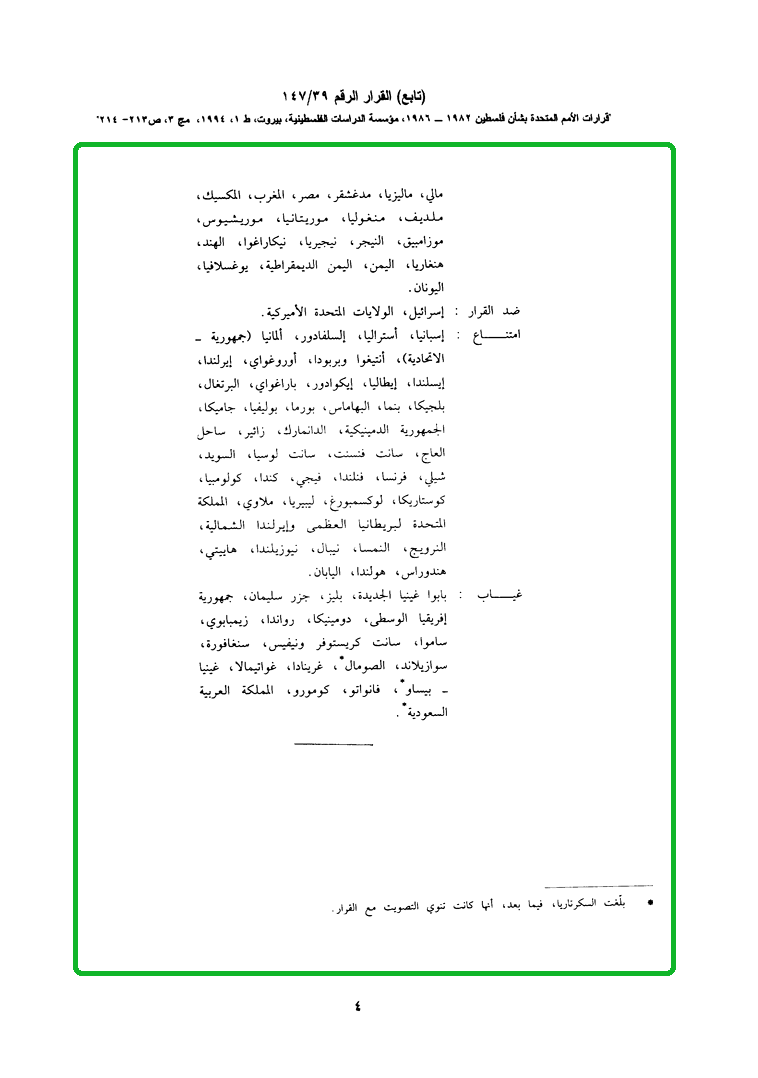 (تابع) القرار الرقم ١٤٧/٣٩
"قرارات الأمم المتحدة بشأن فلسطين ١٩٨٢ – ١٩٨٦، مؤسسة الدراسات الفلسطينية، بيروت، ط ١، ١٩٩٤، مج ٣، ص٢١٣- ٢١٤"
مالي، ماليزيا، مدغشقر، مصر، المغرب، المكسيك،
ملديف، منغوليا، موريتانيا، موريشيوس،
موزامبيق، النيجر، نيجيريا، نيكاراغوا، الهند،
هنغاريا، اليمن، اليمن الديمقراطية، يوغسلافيا،
اليونان.
ضد القرار : إسرائيل، الولايات المتحدة الأميركية.
امتنـــــاع : إسبانيا، أستراليا، إلسلفادور، ألمانيا (جمهورية ـ
الاتحادية)، أنتيغوا وبربودا، أوروغواي، إيرلندا،
إيسلندا، إيطاليا، إيكوادور، باراغواي، البرتغال،
بلجيكا، بنما، البهاماس، بورما، بوليفيا، جاميكا،
الجمهورية الدمينيكية، الدانمارك، زائير، ساحل
العاج، سانت فنسنت، سانت لوسيا، السويد،
شيلي، فرنسا، فنلندا، فيجي، كندا، كولومبيا،
كوستاريكا، لوكسمبورغ، ليبيريا، ملاوي، المملكة
المتحدة لبريطانيا العظمى وإيرلندا الشمالية،
النرويج، النمسا، نيبال، نيوزيلندا، هاييتي،
هندوراس، هولندا، اليابان.
غيـــــاب : بابوا غينيا الجديدة، بليز، جزر سليمان، جمهورية
إفريقيا الوسطى، دومينيكا، رواندا، زيمبابوي،
ساموا، سانت كريستوفر ونيفيس، سنغافورة،
سوازيلاند، الصومال*، غرينادا، غواتيمالا، غينيا
ـ بيساو*، فانواتو، كومورو، المملكة العربية
السعودية*.
* بلّغت السكرتاريا، فيما بعد، أنها كانت تنوي التصويت مع القرار.
٤